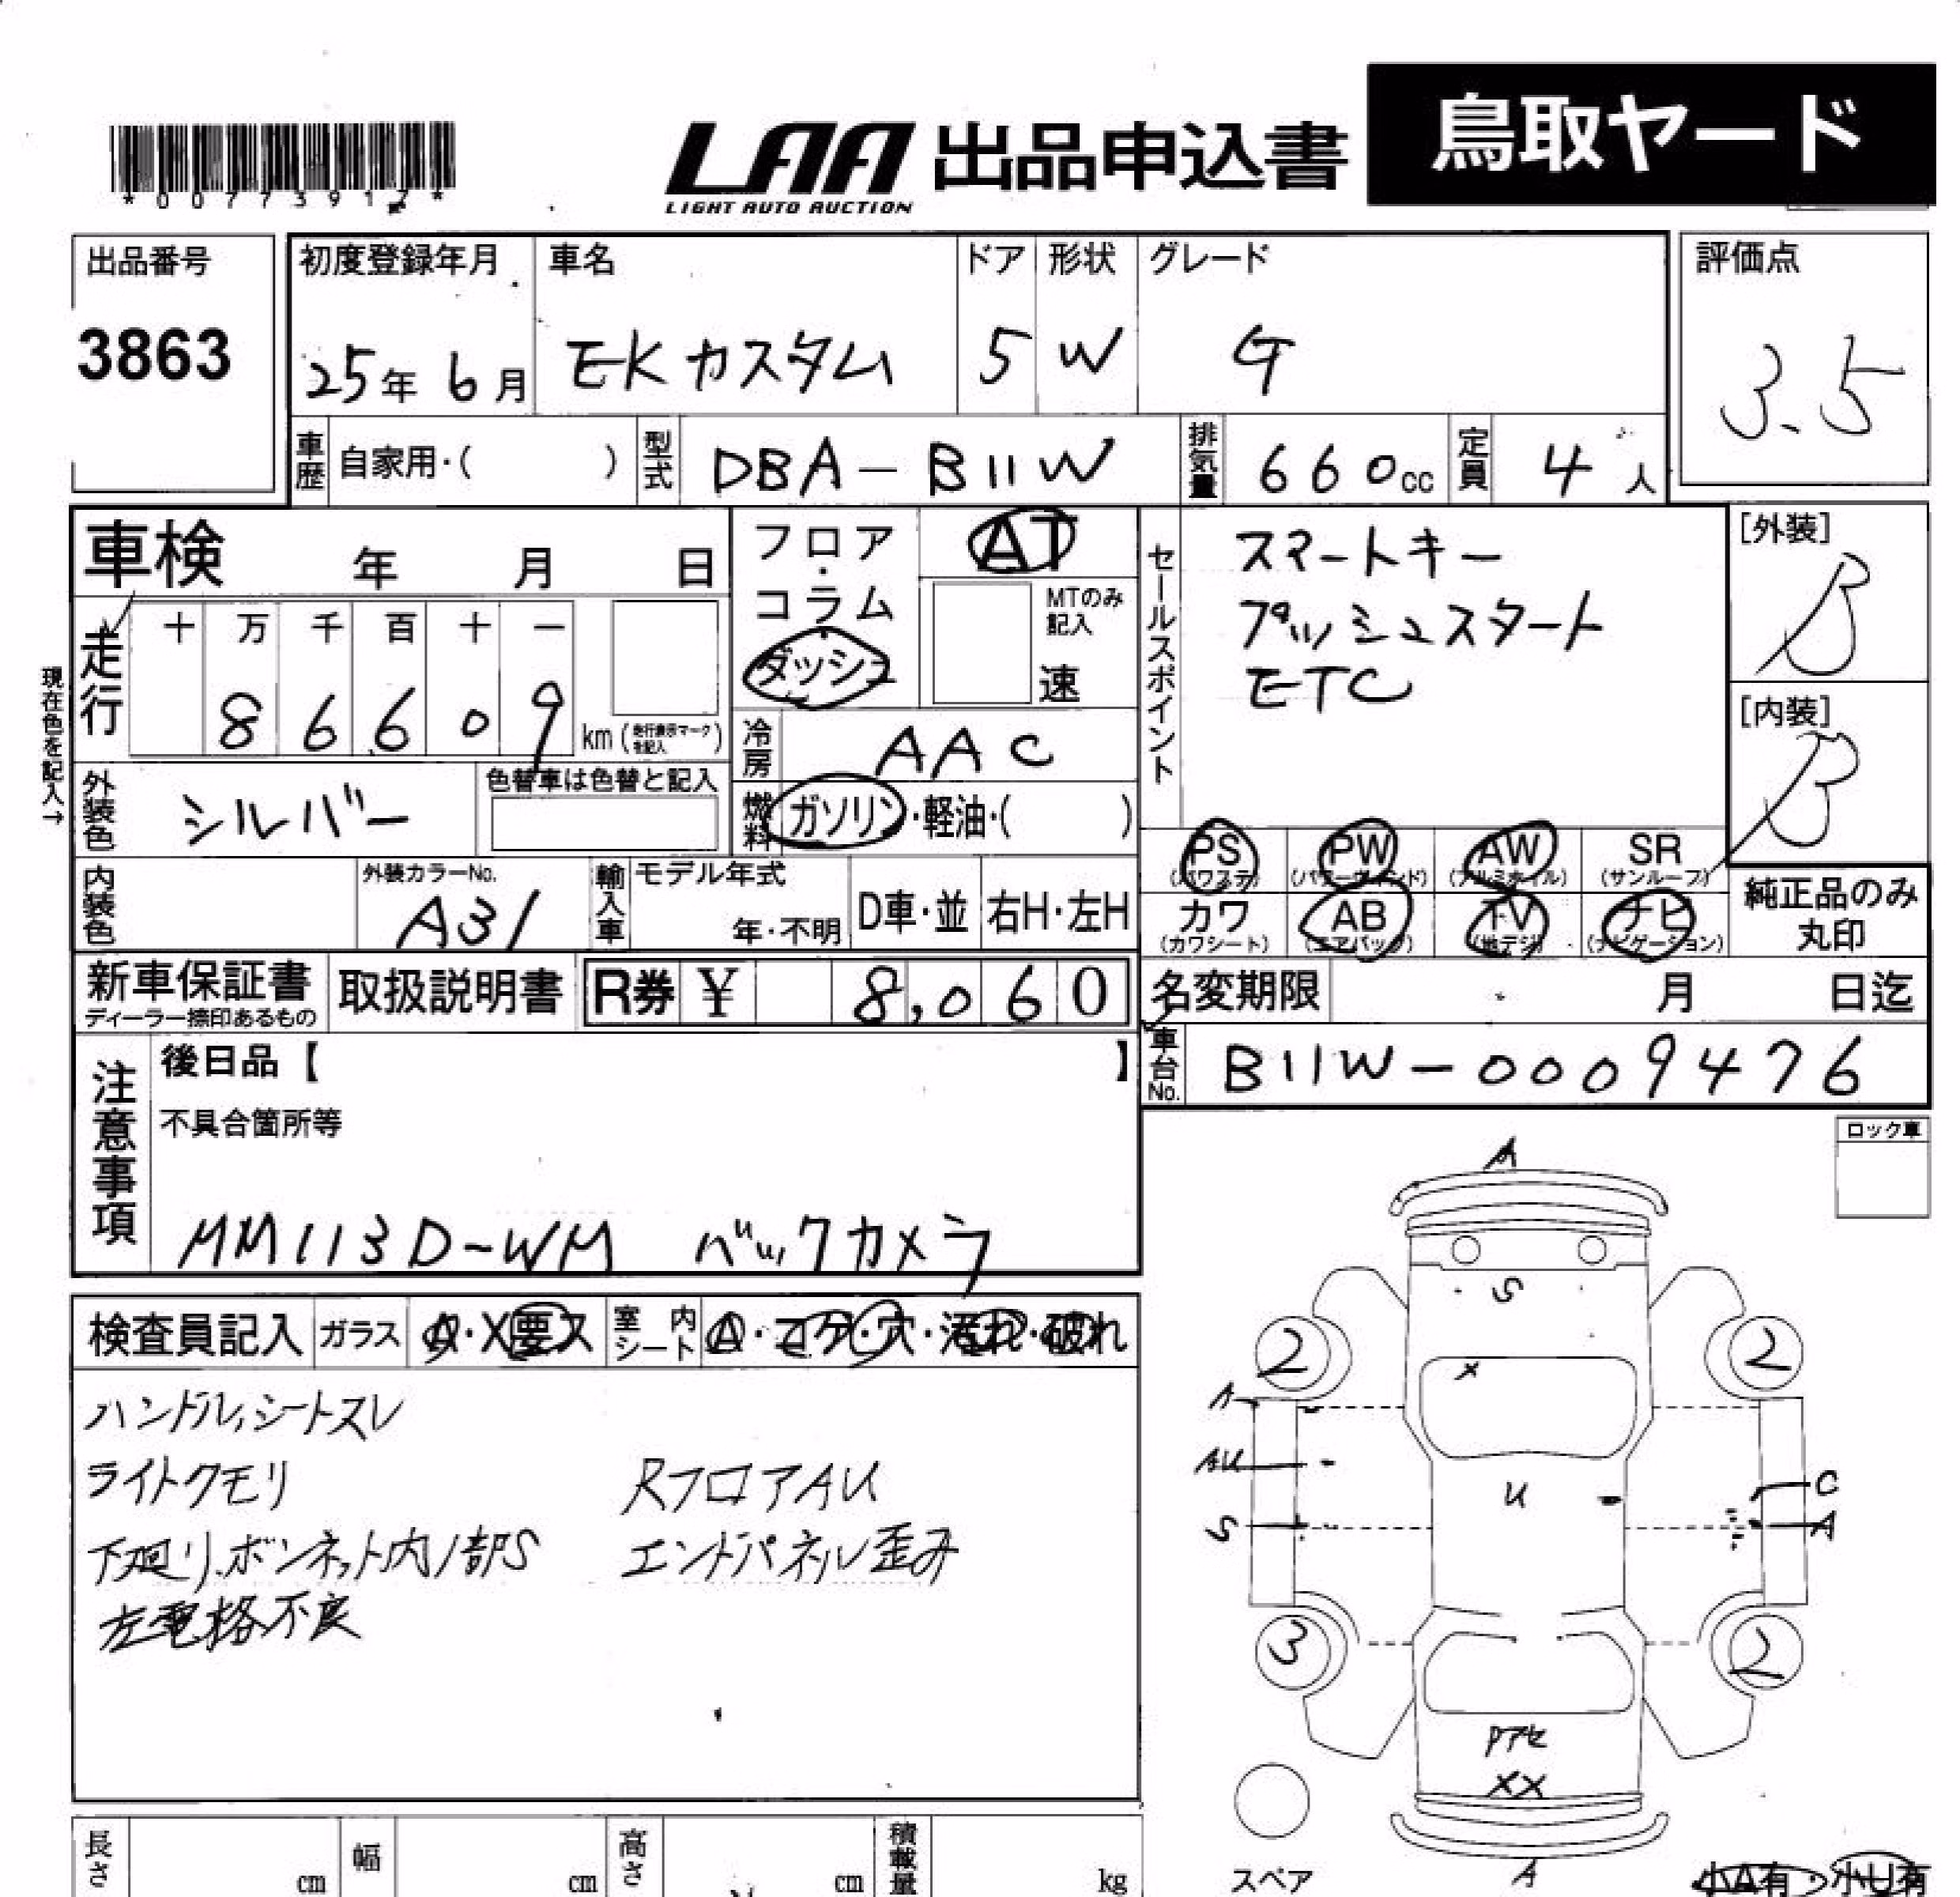 *00773917*
LAA 出品申込書 鳥取ヤード
LIGHT AUTO AUCTION
出品番号 初度登録年月 車名 ドア 形状 グレード 評価点
3863 25年 6月 EKカスタム 5 W G 3.5
車歴 自家用・( ) 型式 DBA-B11W 排気量 660cc 定員 4人
車検 年 月 日 フロア・コラム AT セールスポイント スマートキー [外装]
プッシュスタート B
ETC
現在色を記入→
走行 十 万 千 百 十 一 ダッシュ MTのみ記入 速
8 6 6 0 9 km (走行表示マークを記入) 冷房 AAC [内装]
B
外装色 シルバー 色替車は色替と記入 燃料 ガソリン・軽油・( )
PS (パワステ) PW (パワーウィンド) AW (アルミホイル) SR (サンルーフ)
内装色 外装カラーNo. A31 輸入車 モデル年式 年・不明 D車・並 右H・左H
カワ (カワシート) AB (エアバッグ) TV (地デジ) ナビ (ナビゲーション) 純正品のみ丸印
新車保証書 取扱説明書 R券 ¥ 8,060 名変期限 月 日迄
ディーラー捺印あるもの
車台No. B11W-0009476
注意事項 後日品【 】
不具合箇所等
MM113D-WM バックカメラ
ロック車
検査員記入 ガラス A・X要ス 室内シート A・コゲ・穴・汚れ・破れ
ハンドル、シートスレ
ライトクモリ RフロアAU
下廻リ、ボンネット内ノ部S エンドパネル歪み
左電格不良
A
S
2 2
X
A
AU
U C
S A
3 2
Pアセ
XX
A
スペア
小A有・小U有
長さ cm 幅 cm 高さ cm 積載量 kg